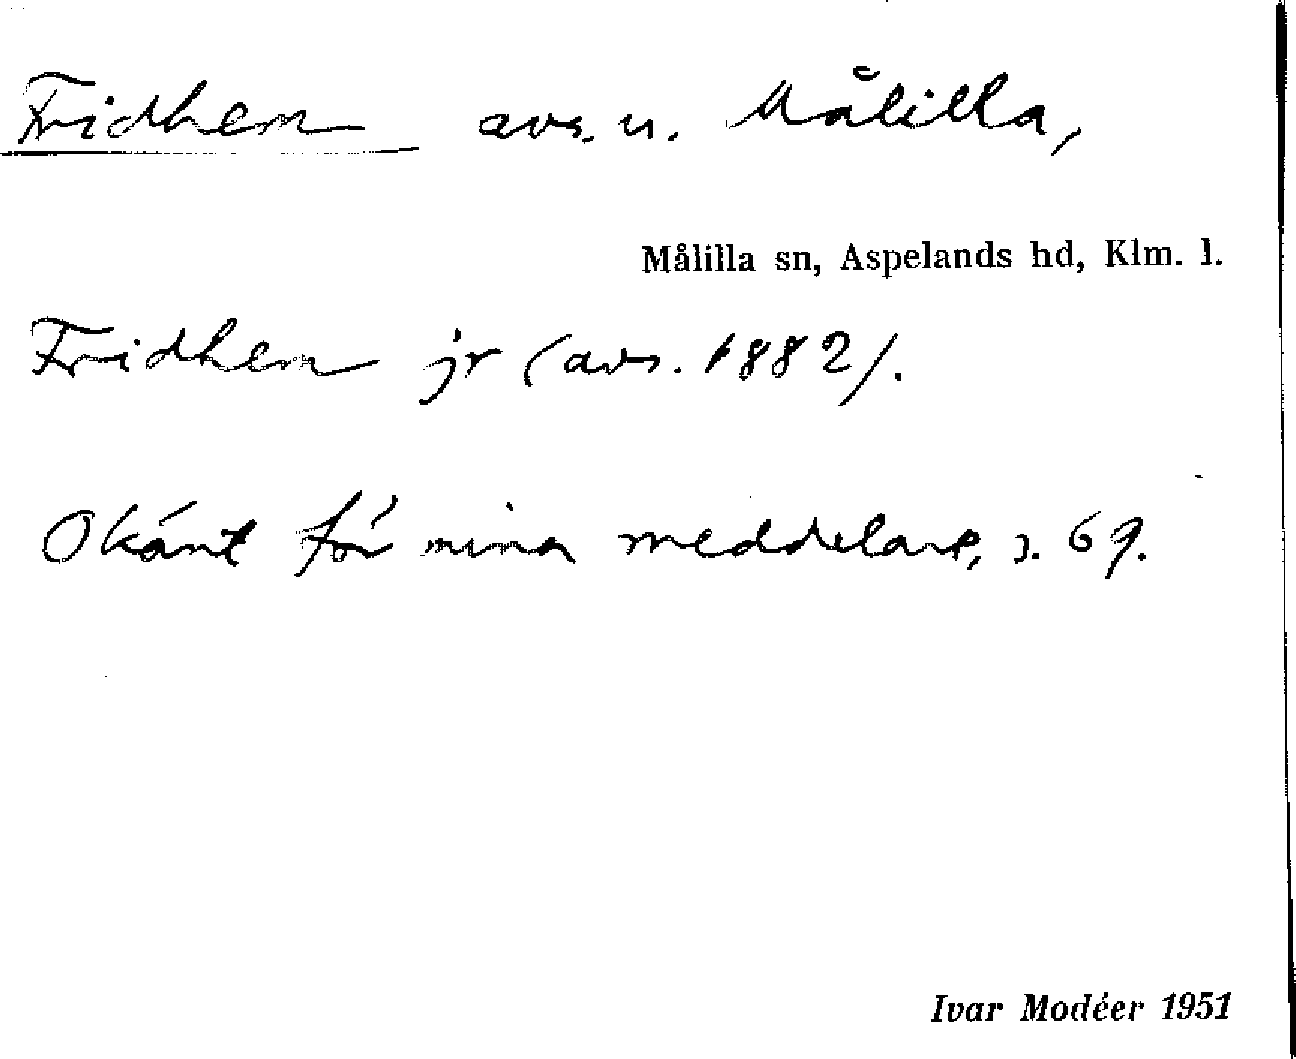 Fridhem avs. u. Målilla,
Målilla sn, Aspelands hd, Klm. l.
Fridhem jr (avs. 1882).
Okánt för mina meddelare, s. 69.
Ivar Modéer 1951